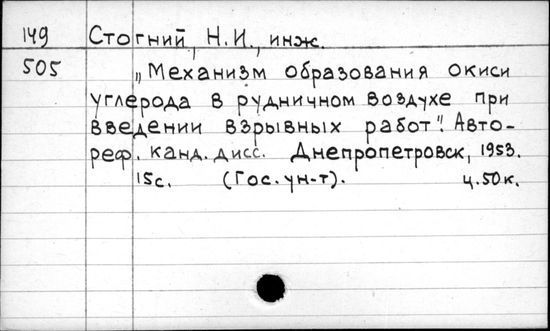 149 Стогний, Н.И., инж.
505 „Механизм образования окиси
углерода в рудничном воздухе при
введении взрывных работ". Авто-
реф. канд. дисс. Днепропетровск, 1953.
15с. (Гос. ун-т). ц. 50к.